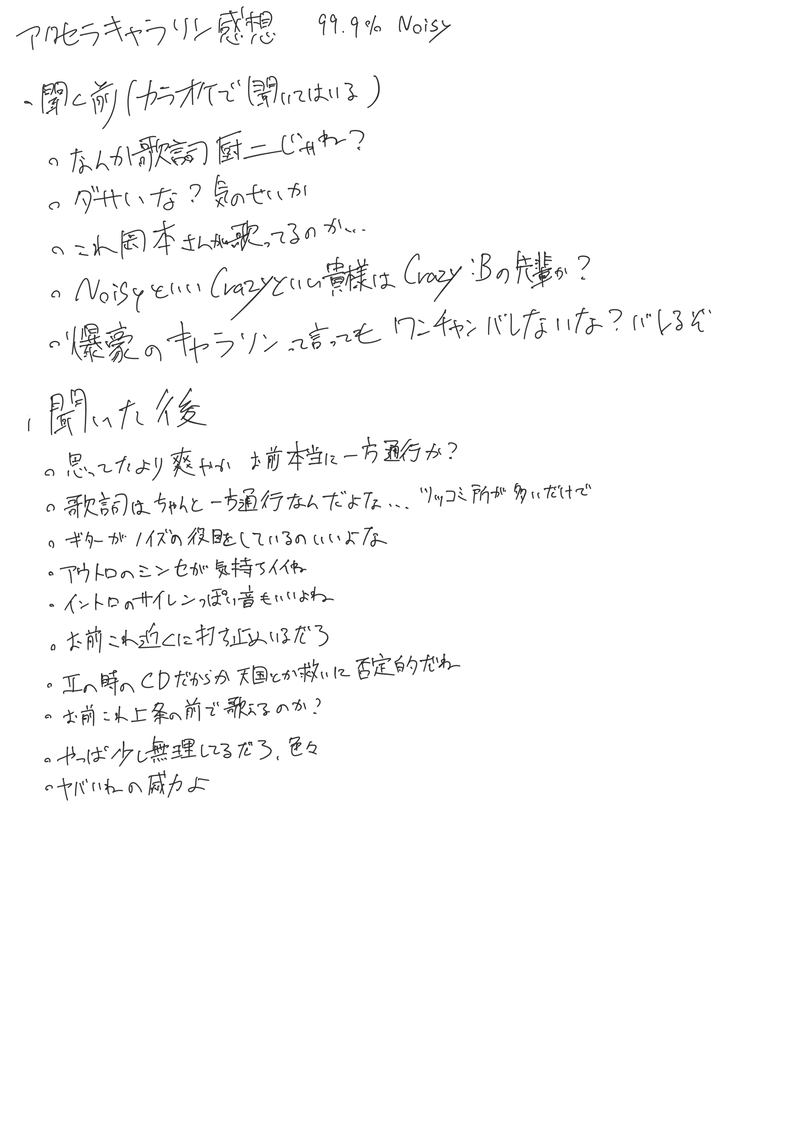 アクセラキャラソン感想 99.9% Noisy
・聞く前(カラオケで聞いてはいる)
。なんか歌詞厨二じゃね?
。ダサいな?気のせいか
。これ岡本さんが歌ってるのか...
。NoisyといいCrazyといい貴様はCrazy:Bの先輩か?
。爆豪のキャラソンって言ってもワンチャンバレしないな?バレるぞ
・聞いた後
。思ってたより爽やか お前本当に一方通行か?
。歌詞はちゃんと一方通行なんだよな... ツッコミ所が多いだけで
。ギターがノイズの役目をしているのいいよな
・アウトロのシンセが気持ちイイね
・イントロのサイレンっぽい音もいいよね
。お前これ近くに打ち止めいるだろ
・Ⅱの時のCDだからか天国とか救いに否定的だね
。お前これ上条の前で歌えるのか?
。やっぱ少し無理してるだろ、色々
。ヤバいねの威力よ